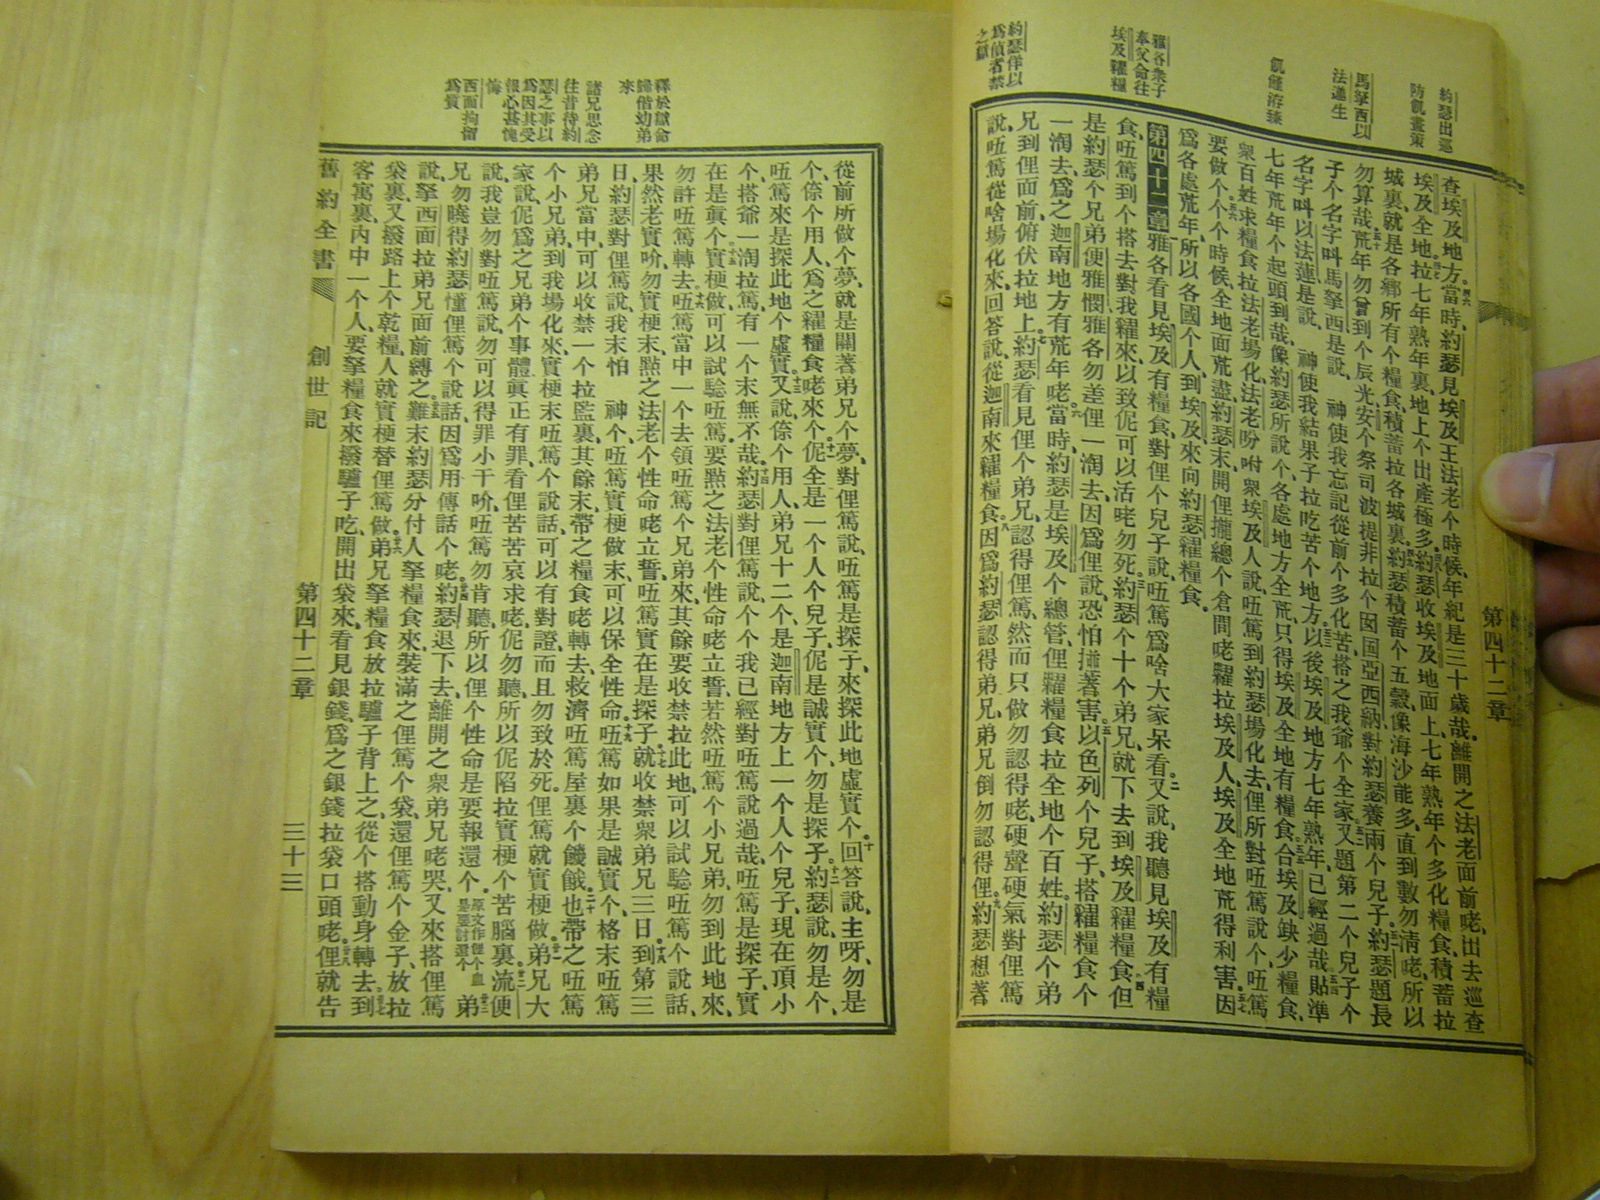 約瑟出巡
防飢畫策
馬拏西以
法蓮生
飢饉洊臻
雅各衆子
奉父命往
埃及糴糧
約瑟佯以
爲偵者禁
之獄
查埃及地方當時約瑟見埃及王法老个時候年紀是三十歲哉離開之法老面前咾出去巡查
埃及全地拉七年熟年裏地上个出產極多約瑟收埃及地面上七年熟年个多化糧食積蓄拉
城裏就是各鄉所有个糧食積蓄拉各城裏約瑟積蓄个五穀像海沙能多直到數勿淸咾所以
勿算哉荒年勿曾到个辰光安个祭司波提非拉个囡囯亞西納對約瑟養兩个兒子約瑟題長
子个名字呌馬拏西是說 神使我忘記從前个多化苦搭之我爺个全家又題第二个兒子个
名字呌以法蓮是說 神使我結果子拉吃苦个地方以後埃及地方七年熟年已經過哉貼準
七年荒年个起頭到哉像約瑟所說个各處地方全荒只得埃及全地有糧食合埃及缺少糧食
衆百姓求糧食拉法老場化法老吩咐衆埃及人說唔篤到約瑟場化去俚所對唔篤說个唔篤
要做个个个時候全地面荒盡約瑟末開俚攏總个倉間咾糶拉埃及人埃及全地荒得利害因
爲各處荒年所以各國个人到埃及來向約瑟糴糧食
第四十二章雅各看見埃及有糧食對俚个兒子說唔篤爲啥大家呆看又說我聽見埃及有糧
食唔篤到个搭去對我糴來以致伲可以活咾勿死約瑟个十个弟兄就下去到埃及糴糧食但
是約瑟个兄弟便雅憫雅各勿差俚一淘去因爲俚說恐怕㨋著害以色列个兒子搭糴糧食个
一淘去爲之迦南地方有荒年咾當時約瑟是埃及个總管俚糶糧食拉全地个百姓約瑟个弟
兄到俚面前俯伏拉地上約瑟看見俚个弟兄認得俚篤然而只做勿認得咾硬聲硬氣對俚篤
說唔篤從啥場化來回答說從迦南來糴糧食因爲約瑟認得弟兄弟兄倒勿認得俚約瑟想著
第四十二章
釋於獄命
歸偕幼弟
來
諸兄思念
往昔待約
瑟之事以
爲因其受
報心甚愧
悔
西面拘留
爲質
從前所做个夢就是關著弟兄个夢對俚篤說唔篤是探子來探此地虛實个回答說主呀勿是
个倷个用人爲之糴糧食咾來个伲全是一个人个兒子伲是誠實个勿是探子約瑟說勿是个
唔篤來是探此地个虛實又說倷个用人弟兄十二个是迦南地方上一个人个兒子現在頂小
个搭爺一淘拉篤有一个末無不哉約瑟對俚篤說个个我已經對唔篤說過哉唔篤是探子實
在是眞个實梗做可以試驗唔篤要㸃之法老个性命咾立誓若然唔篤个小兄弟勿到此地來
勿許唔篤轉去唔篤當中一个去領唔篤个兄弟來其餘要收禁拉此地可以試驗唔篤个說話
果然老實吤勿實梗末㸃之法老个性命咾立誓唔篤實在是探子就收禁衆弟兄三日到第三
日約瑟對俚篤說我末怕 神个唔篤實梗做末可以保全性命唔篤如果是誠實个格末唔篤
弟兄當中可以收禁一个拉監裏其餘末帶之糧食咾轉去救濟唔篤屋裏个饑餓也帶之唔篤
个小兄弟到我場化來實梗末唔篤个說話可以有對證而且勿致於死俚篤就實梗做弟兄大
家說伲爲之兄弟个事體眞正有罪看俚苦苦哀求咾伲勿聽所以伲陷拉實梗个苦腦裏流便
說我豈勿對唔篤說勿可以得罪小干吤唔篤勿肯聽所以俚个性命是要報還个原文作俚个血是要討還个弟
兄勿曉得約瑟懂俚篤个說話因爲用傳話个咾約瑟退下去離開之衆弟兄咾哭又來搭俚篤
說拏西面拉弟兄面前縛之難末約瑟分付人拏糧食來裝滿之俚篤个袋還俚篤个金子放拉
袋裏又撥路上个乾糧人就實梗替俚篤做弟兄拏糧食放拉驢子背上之從个搭動身轉去到
客寓裏內中一个人要拏糧食來撥驢子吃開出袋來看見銀錢爲之銀錢拉袋口頭咾俚就告
舊約全書 創世記 第四十二章 三十三